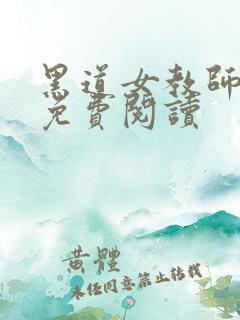 黑道女教師
免費閱讀
黄體
未经同意禁止转载